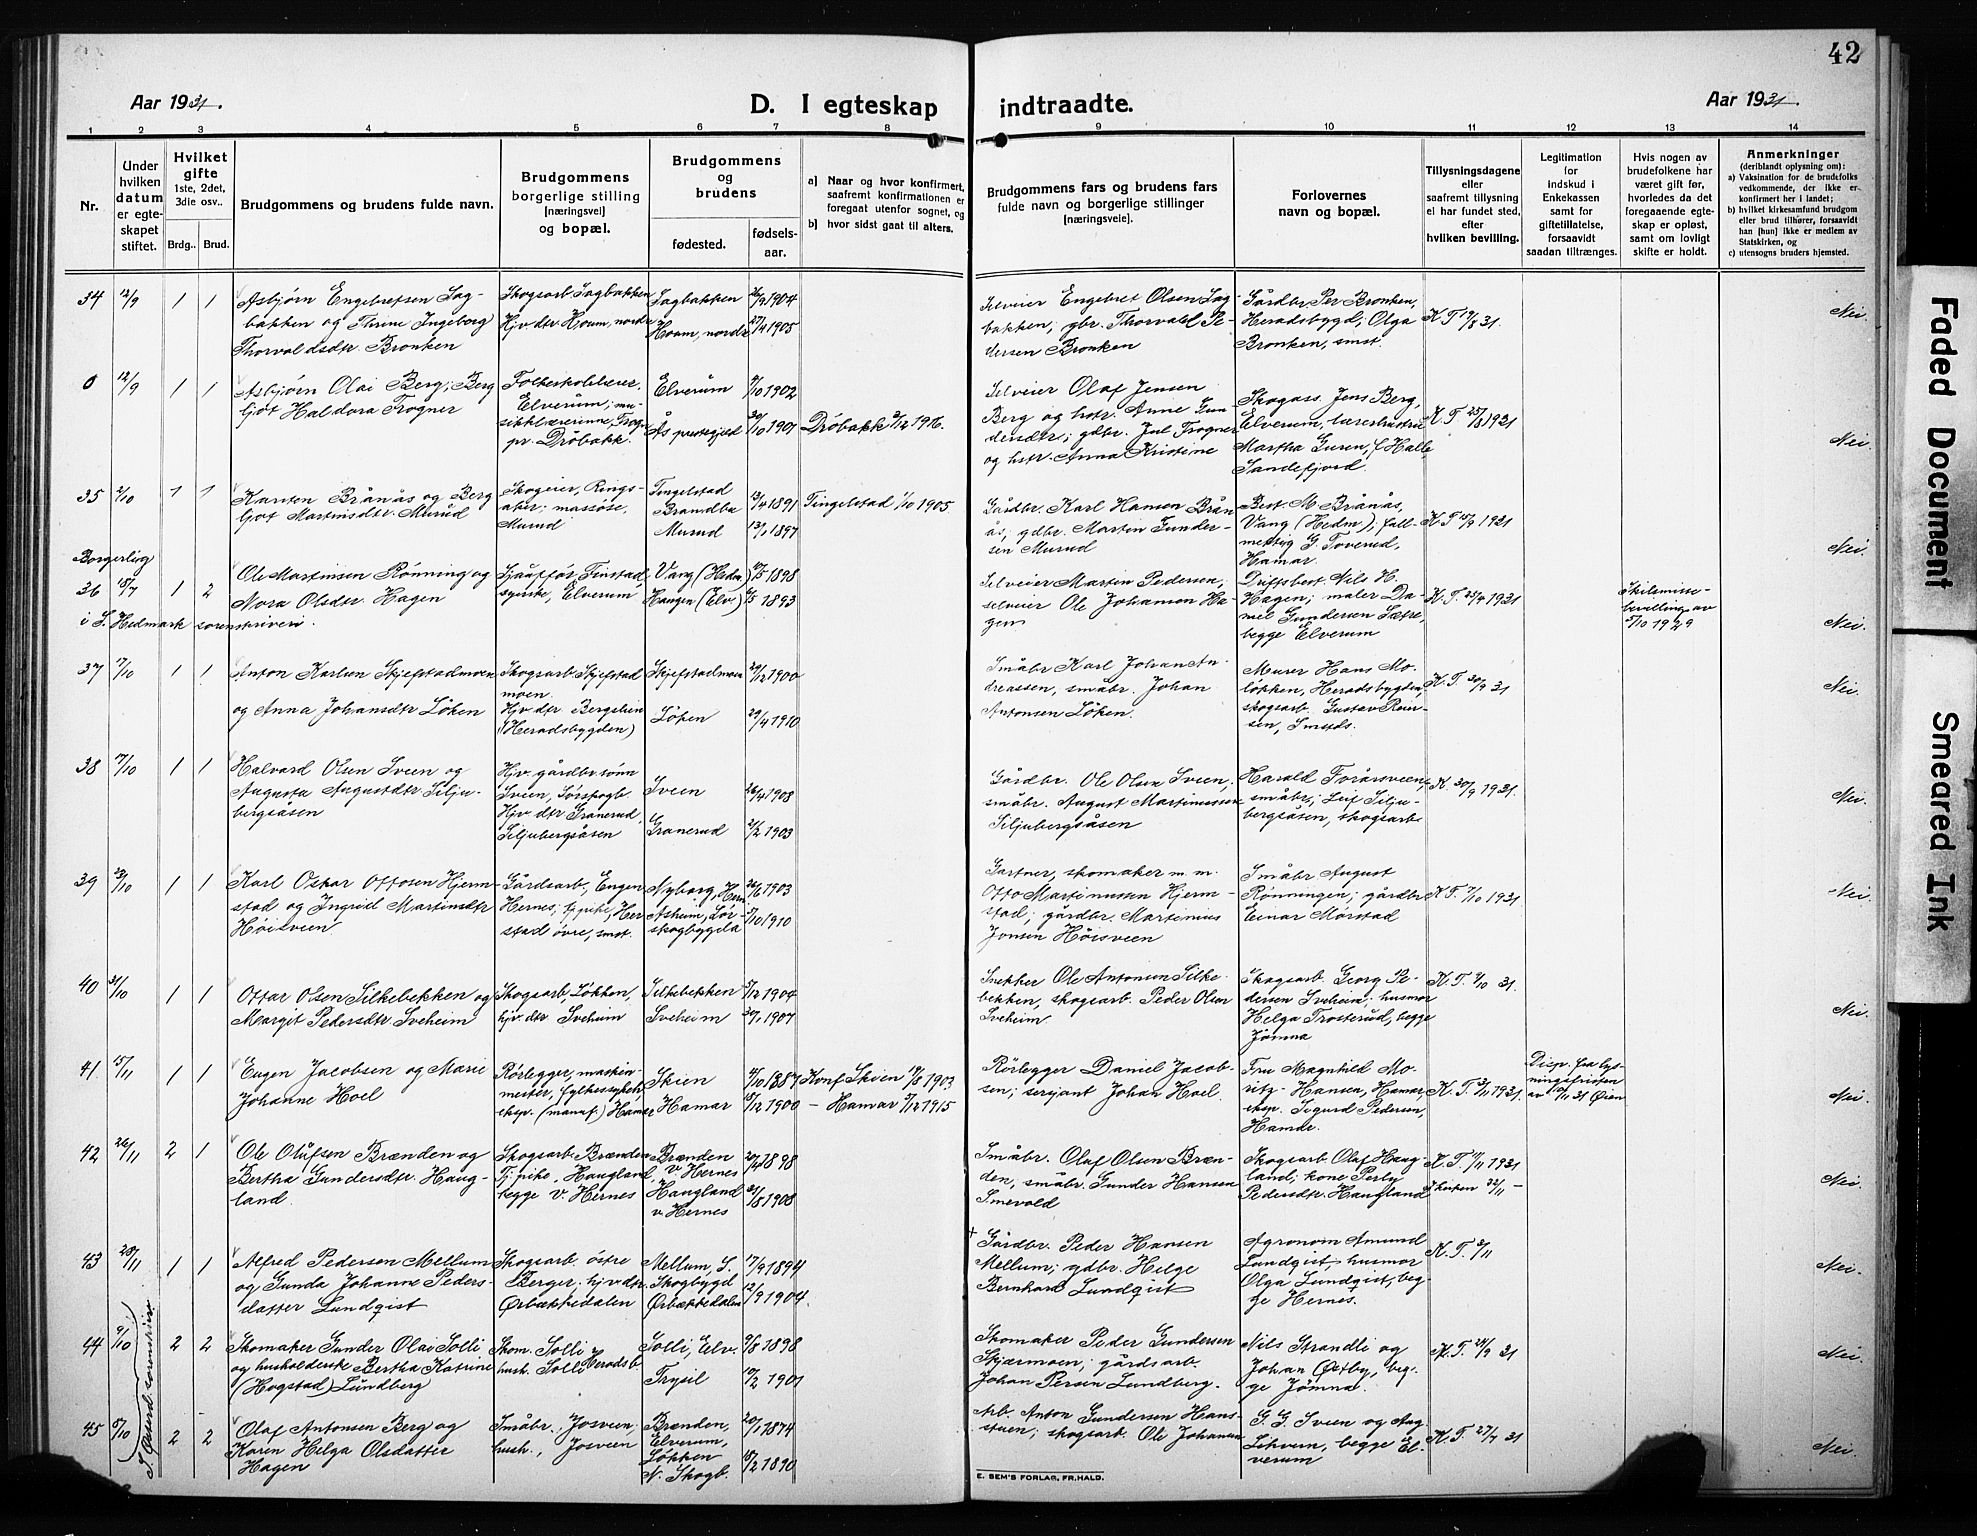 42
Aar 1931.
D. I egteskap indtraadte.
Aar 1931.
1 2 3 4 5 6 7 8 9 10 11 12 13 14
Nr.
Under hvilken datum er egteskapet stiftet.
Hvilket gifte 1ste, 2det, 3die osv..
Brdg.. Brud.
Brudgommens og brudens fulde navn.
Brudgommens borgerlige stilling [næringsvei] og bopæl.
Brudgommens og brudens
fødested. fødsels-aar.
a) Naar og hvor konfirmert, saafremt konfirmationen er foregaat utenfor sognet, og
b) hvor sidst gaat til alters.
Brudgommens fars og brudens fars fulde navn og borgerlige stillinger [næringsveie].
Forlovernes navn og bopæl.
Tillysningsdagene eller saafremt tillysning ei har fundet sted, efter hvilken bevilling.
Legitimation for indskud i Enkekassen samt for giftetillatelse, forsaavidt saadan tiltrænges.
Hvis nogen av brudefolkene har været gift før, hvorledes da det foregaaende egteskap er opløst, samt om lovligt skifte er holdt.
Anmerkninger (deriblandt oplysning om):
a) Vaksination for de brudefolks vedkommende, der ikke er konfirmert her i landet;
b) hvilket kirkesamfund brudgom eller brud tilhører, forsaavidt han [hun] ikke er medlem av Statskirken, og
c) utensogns bruders hjemsted.
34 12/9 1 1
Asbjørn Engebretsen Sagbakken og Thrine Ingeborg Thorvaldsdtr. Bronken
Skogsarb. Sagbakken
Hjv. dtr Hoam, nordre
Sagbakken 26/9 1904
Hoam, nordre 27/4 1905
Selveier Engebret Olsen Sagbakken; gbr. Thorvald Pedersen Bronken
Gårdbr. Per Bronken, Heradsbygd; Olga Bronken, smst.
Nei.
0 12/9 1 1
Asbjørn Olai Berg; Bergljot Haldora Frogner
Elverum; musikklærerinne, Frogn pr. Drøbakk.
Elverum 9/10 1902
Ås prestegjeld 30/10 1901
Drøbakk
Selveier Olaf Jensen Berg og hstr. Anne Gundersdtr; gdbr. Jul Frogner og hstr. Anna Kristine
Skogass. Jens Berg, Elverum,
Martha Guren, f. Halle
Sandefjord.
K. T. 25/8 1931
Nei.
35 2/10 1 1
Karsten Brånås og Bergljot Martinsdtr. Murud
Skogeier, Ringsaker; massøse, Murud
Tingelstad Brandbu 13/4 1891
Murud 13/1 1897
Tingelstad 1/10 1905
Gårdbr. Karl Hanson Brånås; gdbr. Martin Gundersen Murud
Best. M. Brånås, Vang (Hedm); fullmektig G. Toverud, Hamar.
Nei.
Borgerlig
36 18/7 1 2
i S. Hedmark sorenskriveri.
Ole Martinsen Rønning og Nora Olsdtr. Hagen
Sjåufør, Finstad, Elverum
Vang (Hedm)
Haugen (Elv.)
Selveier Martin Pedersen; selveier Ole Johanson Hagen
Driftsbest. Nils H. Hagen; maler Daniel Gundersen Sætre, begge Elverum
Skilsmissebevilling av 5/10 1929
Nei.
37 17/10 1 1
Anton Karlsen Skjefstadmoen og Anna Johansdtr Løken
Skogsarb. Skjefstadmoen.
Hjv. dtr Bergsheim (Heradsbygden)
Skjefstadmoen 29/12 1900
Løken 29/4 1910
Småbr Karl Johan Andreassen, småbr. Johan Antonsen Løken.
Murer Hans Moløkken, Heradsbygden; skogsarb. Gustav Reiersen, Smsts.
K. T. 30/9 31
Nei.
38 17/10 1 1
Halvard Olsen Sveen og Augusta Augustdtr Siljubergsåsen
Hjv. gårdbr. sønn Sveen, Sørskogb
Hjv. dtr Granerud, Siljubergsåsen
Sveen 26/4 1908
Granerud 21/2 1903
Gårdbr. Ole Olsen Sveen; småbr. August Martinussen Siljubergsåsen
småbr; Leif Siljubergsåsen, skogsarb.
K. 30/9 1931.
Nei.
39 23/10 1 1
Karl Oskar Ottosen Hjermstad og Ingrid Martinsdtr Høisveen
Gårdsarb., Engen Hernes; tj. pike, Herstad øvre, smst.
Nyborg, Hern 26/6 1903
Askum, Sørskogbygda 5/10 1910
Gartner, skomaker m. m. Otto Martinussen Hjermstad; gårdbr. Martinius Jonsen Høisveen
Småbr August Rønningen; gårdbr Einar Mørstad
K. T. 7/10 1931
Nei.
40 31/10 1 1
Ottar Olsen Silkebekken og Margit Pedersdtr. Sveheim
Skogsarb, Løkken, hjv. dtr Sveheim
Silkebekken 5/12 1904
Sveheim 30/1 1907
Snekker Ole Antonsen Silkebekken, skogsarb. Peder Olsen Sveheim.
Skogsarb. Georg Pedersen Sveheim; husmor Helga Trosterud, begge Jømna
Nei.
41 15/11 1 1
Eugen Jacobsen og Marie Johanne Hoel
Rørlegger, maskinmester, fylkessykeh
eksp. (manuf.) Hamar
Skien
Hamar 18/12 1900
Konf. Skien 1903
— Hamar 5/12 1915
Rørlegger Daniel Jacobsen; sersjant Johan Hoel.
Fru Magnhild Moritz-Hansen, Hamar eksp. Sigurd Pedersen, Hamar.
K. T. 3/11 1931.
Disp. fra lysningsfristen
Nei.
42 26/11 2 1
Ole Olufsen Brænden og Bertha Gundersdtr. Haugland.
Skogsarb. Brænden
Tj. pike, Haugland, begge v. Hernes
Brænden v. Hernes 1898
Haugland v. Hernes 31/8 1908
Småbr. Olaf Olsen Brænden, småbr. Gunder Hansen Smevold
Skogsarb Olaf Haugland; kone Perly Pedersdtr. Haugland
K. T. 11/11 1931
Nei.
43 28/11 1 1
Alfred Pederson Mellum og Gunda Johanne Pedersdatter Lundqist
Skogsarb. østre Berger; hjv. dtr. Ørbækkedalen
Mellum, S. Skogbygd 17/9 1894
Ørbækkedalen 12/9 1904.
Gårdbr. Peder Hansen Mellum; gdbr. Helge Bernhard Lundqist
Agronom Amund Lundqist, husmor Olga Lundqist, begge Hernes.
K. T. 3/11
Nei.
44 9/10 2 2
Skomaker Gunder Olai Solli og husholderske Bertha Katrine (Hogstad) Lundberg
Skom. Solli
hush. Solli Heradsb.
Solli, Elv. 9/8 1898
Trysil 17/2 1901
Skomaker Peder Gundersen Skjærmoen; gårdsarb. Johan Persen Lundberg.
Nils Strandli og Johan Østby, begge Jømna.
K. T. 24/9 31
Nei.
45 8/10 2 2
Olaf Antonsen Berg og Karen Helga Olsdatter Hagen
Småbr., Josveen
hush., Josveen
Brænden, Elverum, 20/1 1874
Løkken N. Skogb. 18/2 1890
Arb. Anton Gundersen Hansstuen; skogsarb. Ole Johansen
G. G. Sveen og Aug. Sikveen, begge Elverum
K. T. 27/7 31
Nei.
E. SEM'S FORLAG, FR.HALD.
Faded Document
Smeared Ink